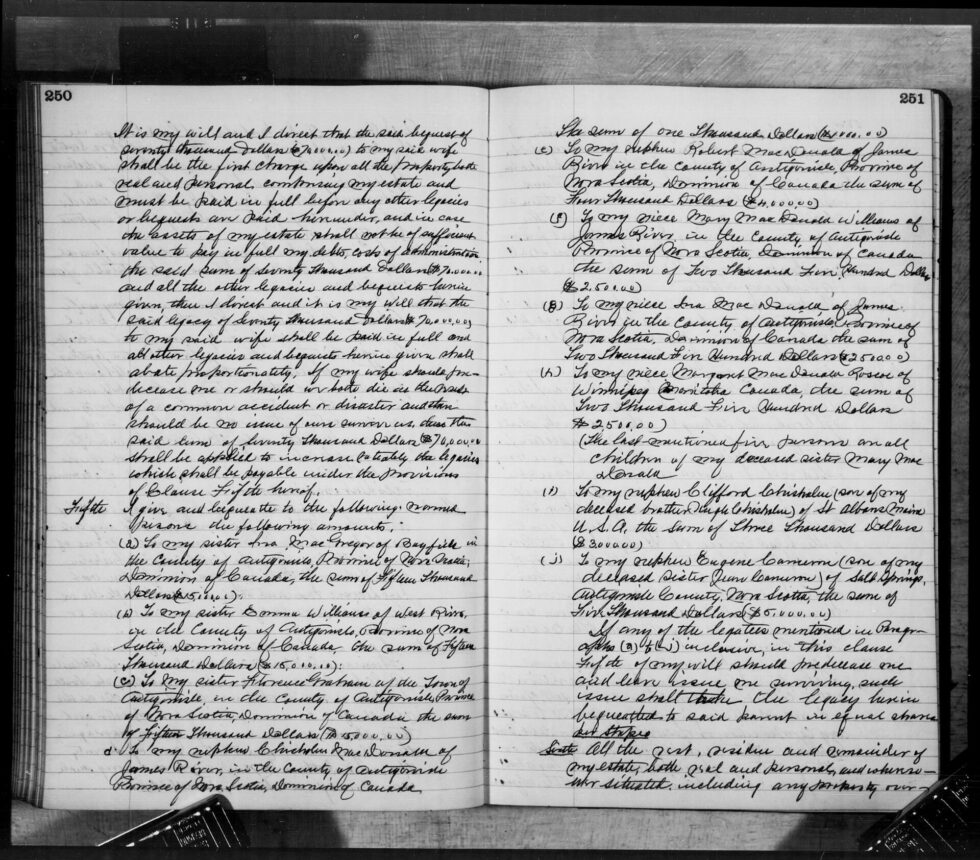 250
It is my will and I direct that the said bequest of
seventy thousand Dollars ($70,000.00) to my said wife
shall be the first charge upon all the property, both
real and personal, comprising my estate and
must be paid in full before any other legacies
or bequests are paid hereunder, and in case
the assets of my estate shall not be of sufficient
value to pay in full my debts, costs of administration
the said sum of Seventy Thousand Dollars ($70,000.00
and all the other legacies and bequests herein
given, then I direct and it is my will that the
said legacy of Seventy thousand Dollars ($70,000.00)
to my said wife shall be paid in full and
all other legacies and bequests herein given shall
abate proportionately. If my wife should pre-
decease me or should we both die as the result
of a common accident or disaster and there
should be no issue of ours survive us, then the
said sum of Seventy Thousand Dollars ($70,000.00
shall be applied to increase rateably the legacies
which shall be payable under the provisions
of Clause Fifth hereof.
Fifth I give and bequeath to the following named
persons the following amounts:
(a) To my sister Ina MacGregor of Bayfield in
the County of Antigonish, Province of Nova Scotia,
Dominion of Canada, the sum of Fifteen Thousand
Dollars ($15,000.):
(b) To my sister Emma Williams of West River,
in the County of Antigonish, Province of Nova
Scotia, Dominion of Canada, the sum of Fifteen
Thousand Dollars ($15,000.00):
(c) To my sister Florence Graham of the Town of
Antigonish, in the County of Antigonish Province
of Nova Scotia, Dominion of Canada the sum
of Fifteen Thousand Dollars ($15,000.00)
d To my nephew Chisholm MacDonald of
James River, in the County of Antigonish
Province of Nova Scotia, Dominion of Canada
251
the sum of one Thousand Dollars ($1,000.00)
(e) To my nephew Robert MacDonald of James
River in the County of Antigonish, Province of
Nova Scotia, Dominion of Canada the sum of
Four Thousand Dollars ($4,000.00)
(f) To my niece Mary MacDonald Williams of
James River, in the County of Antigonish
Province of Nova Scotia, Dominion of Canada
the sum of Two Thousand Five Hundred Dollars
$2,500.00)
(g) To my niece Ina MacDonald of James
River in the County of Antigonish Province of
Nova Scotia, Dominion of Canada the sum of
Two Thousand Five Hundred Dollars ($2500.00)
(h) To my niece Margaret MacDonald Roscoe of
Winnipeg Manitoba Canada, the sum of
Two Thousand Five Hundred Dollars
$2,500.00)
(The last mentioned five persons are all
children of my deceased sister Mary Mac
Donald
(i) To my nephew Clifford Chisholm (son of my
deceased brother Hugh Chisholm) of St Albans Maine
U.S.A, the sum of Three Thousand Dollars
($3,000.00)
(j) To my nephew Eugene Cameron (son of my
deceased sister Jean Cameron) of Salt Springs,
Antigonish County, Nova Scotia, the sum of
Five Thousand Dollars ($5,000.00)
If any of the legatees mentioned in Paragr-
aphs (a) to (j) inclusive, in this clause
Fifth of my will should predecease me
and leave issue me surviving, such
issue shall take the legacy herein
bequeathed to said parent in equal shares
per stirpes
Sixth All the rest, residue and remainder of
my estate, both real and personal, and whereso-
ever situated, including any property over-